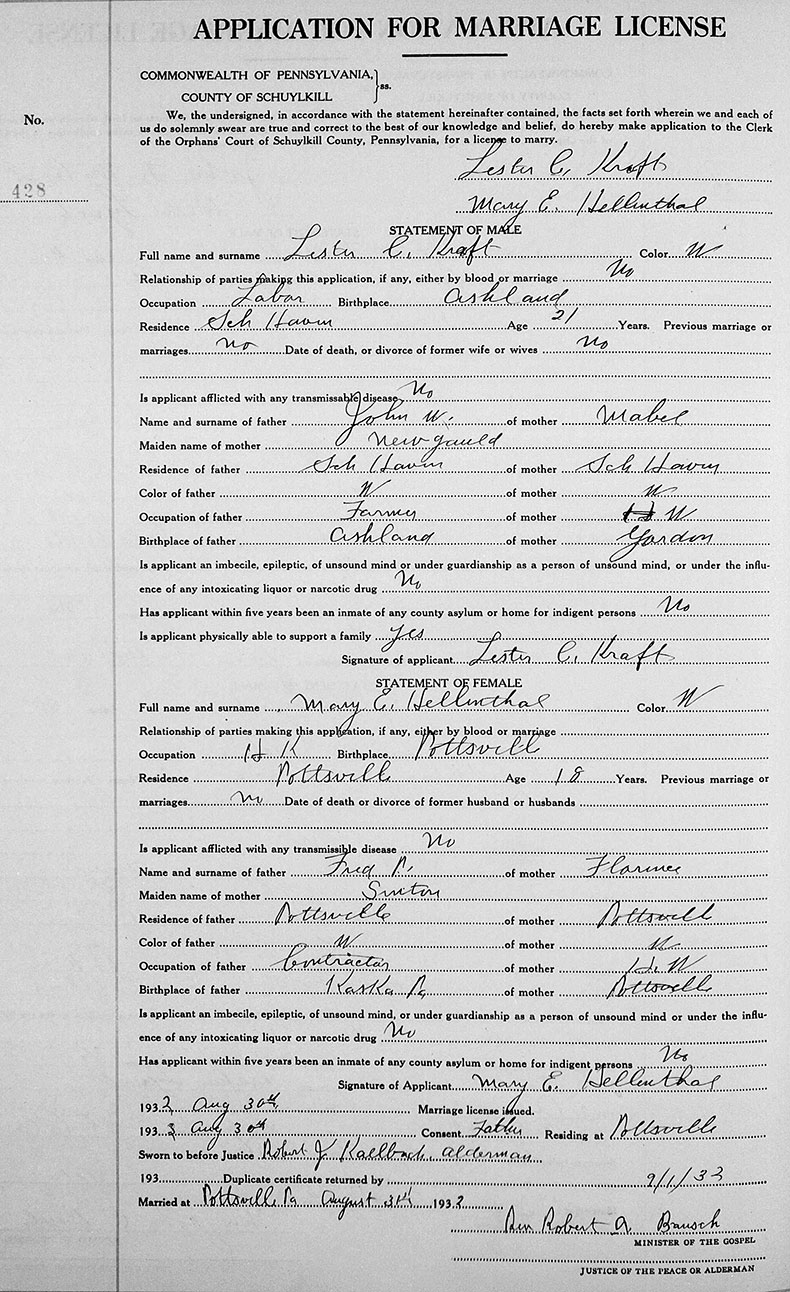 APPLICATION FOR MARRIAGE LICENSE
COMMONWEALTH OF PENNSYLVANIA, } ss.
COUNTY OF SCHUYLKILL
No.
428
We, the undersigned, in accordance with the statement hereinafter contained, the facts set forth wherein we and each of
us do solemnly swear are true and correct to the best of our knowledge and belief, do hereby make application to the Clerk
of the Orphans' Court of Schuylkill County, Pennsylvania, for a license to marry.
Lester C. Kraft
Mary E. Hellenthal
STATEMENT OF MALE
Full name and surname Lester C. Kraft Color W
Relationship of parties making this application, if any, either by blood or marriage No
Occupation Labor Birthplace Ashland
Residence Sch Haven Age 21 Years. Previous marriage or
marriages no Date of death, or divorce of former wife or wives No
Is applicant afflicted with any transmissable disease No
Name and surname of father John W. of mother Mabel
Maiden name of mother Newgauld
Residence of father Sch Haven of mother Sch Haven
Color of father W of mother W
Occupation of father Farmer of mother W
Birthplace of father Ashland of mother Gordon
Is applicant an imbecile, epileptic, of unsound mind or under guardianship as a person of unsound mind, or under the influ-
ence of any intoxicating liquor or narcotic drug No
Has applicant within five years been an inmate of any county asylum or home for indigent persons No
Is applicant physically able to support a family Yes
Signature of applicant Lester C. Kraft
STATEMENT OF FEMALE
Full name and surname Mary E. Hellenthal Color W
Relationship of parties making this application, if any, either by blood or marriage
Occupation H K Birthplace Pottsville
Residence Pottsville Age 18 Years. Previous marriage or
marriages no Date of death or divorce of former husband or husbands
Is applicant afflicted with any transmissible disease No
Name and surname of father Fred P. of mother Florence
Maiden name of mother
Residence of father Pottsville of mother Pottsville
Color of father W of mother W
Occupation of father Contractor of mother H. W
Birthplace of father Kaska Pa of mother Pottsville
Is applicant an imbecile, epileptic, of unsound mind, or under guardianship as a person of unsound mind or under the influ-
ence of any intoxicating liquor or narcotic drug No
Has applicant within five years been an inmate of any county asylum or home for indigent persons No
Signature of Applicant Mary E. Hellenthal
1932 Aug 30th Marriage license issued.
193 Aug 30th Consent Father Residing at Pottsville
Sworn to before Justice Robert J Alderman
193 Duplicate certificate returned by 9/1/32
Married at Pottsville Pa August 31st 1932
Rev Robert A. Bausch
MINISTER OF THE GOSPEL
JUSTICE OF THE PEACE OR ALDERMAN